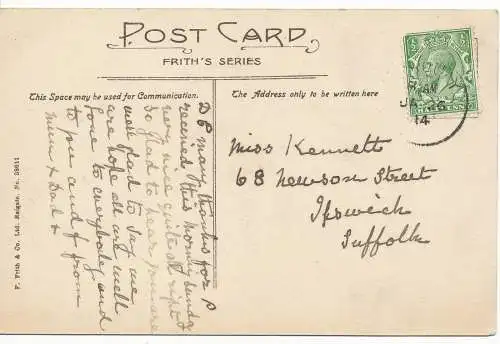 POST CARD
FRITH'S SERIES
This Space may be used for Communication.
The Address only to be written here
F. Frith & Co., Ltd. Reigate. No. 25611
JA 26
14
Miss Kennett
68 Newson Street
Ipswich
Suffolk
D P many thanks for P
received this morning Sunday
very nice quite all right
so glad to hear you are
well glad to say we
are hope all are well
love to everybody and
to you and from
Mum & Dad